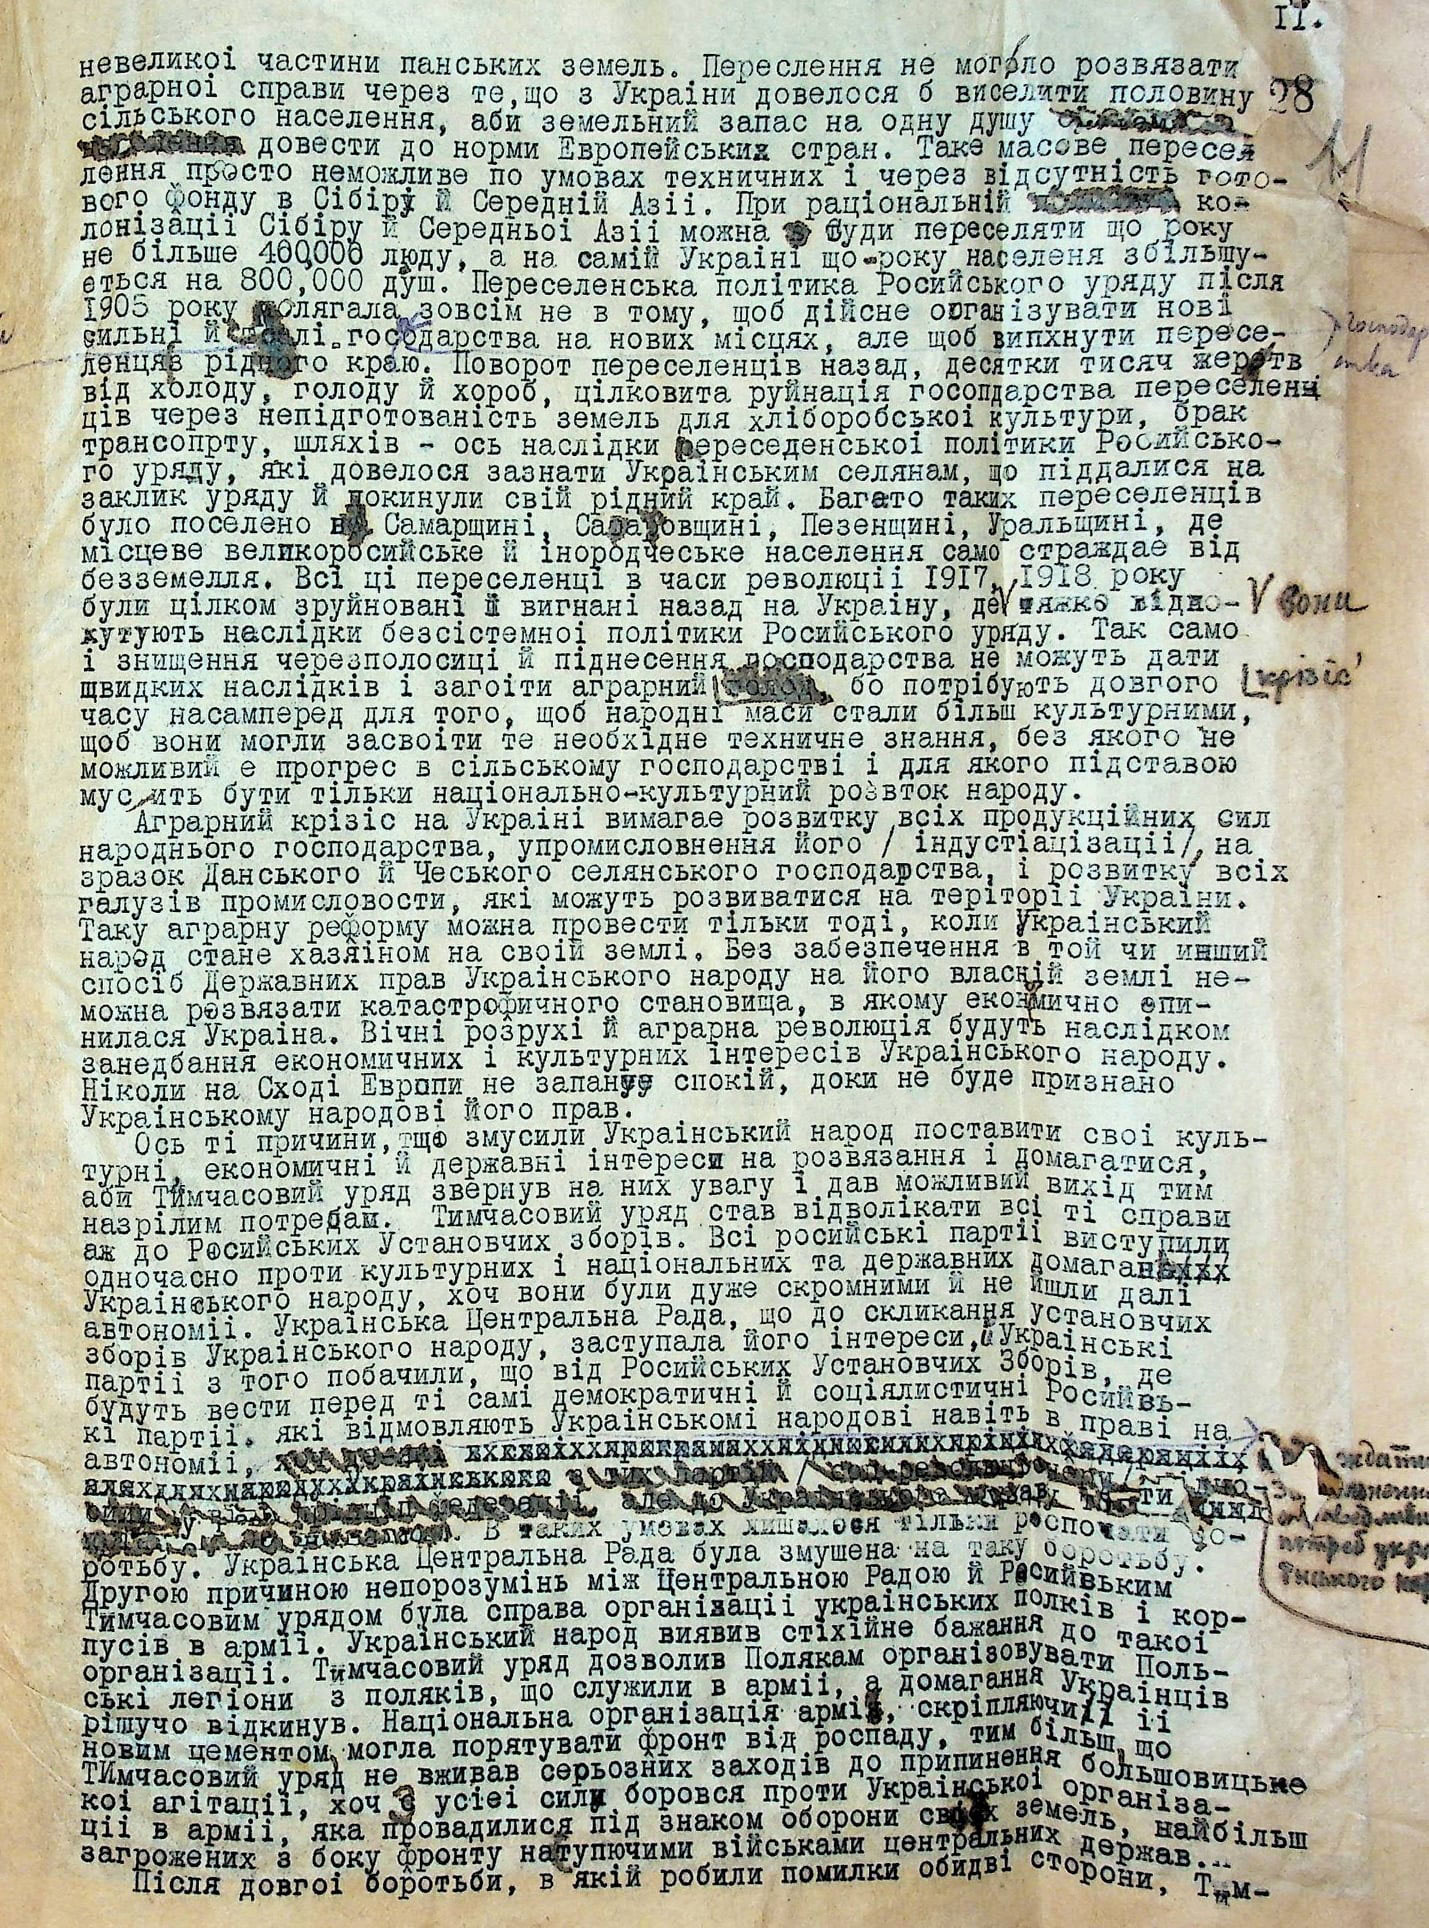 11.
28
невеликоі частини панських земель. Переслення не могло розвязати
аграрноі справи через те,що з Украіни довелося б виселити половину
сільського населення, аби земельний запас на одну душу
довести до норми Европейських стран. Таке масове пересел
лення просто неможливе по умовах техничних і через відсутність гото-
вого фонду в Сібірі й Середній Азіі. При раціональній ко-
лонізаціі Сібіру й Середньоі Азіі можна буди переселяти що року
не більше 400,000 люду, а на самій Украіні що-року населеня збільшу-
еться на 800,000 душ. Переселенська політика Росийського уряду після
1905 року полягала зовсім не в тому, щоб дійсне организувати нові
сильні й господарства на нових місцях, але щоб випхнути пересе-
ленцяз рідного краю. Поворот переселенців назад, десятки тисяч жертв
від холоду, голоду й хороб, цілковита руйнація госопдарства переселенц
ців через непідготованість земель для хліборобськоі культури, брак
трансопрту, шляхів - ось наслідки переседенськоі політики Росийсько-
го уряду, які довелося зазнати Украінським селянам, що піддалися на
заклик уряду й покинули свій рідний край. Багато таких переселенців
було поселено на Самарщині, Саратовщині, Пезенщині, Уральщині, де
місцеве великоросийське й інородческое населення само страждае від
безземелля. Всі ці переселенці в часи революціі 1917, 1918 року
були цілком зруйновані й вигнані назад на Украіну, де V тяжко відпо- V вони
кутують наслідки безсістемноі політики Росийського уряду. Так само
і знищення черезполосиці й піднесення господарства не можуть дати
щвидких наслідків і загоіти аграрний бо потрібують довгого крізіс
часу насамперед для того, щоб народні маси стали більш культурними,
щоб вони могли засвоіти те необхідне техничне знання, без якого не
можливий е прогрес в сільському господарстві і для якого підставою
мусить бути тільки національно-культурний розвток народу.
Аграрний крізіс на Украіні вимагае розвитку всіх продукційних сил
народнього господарства, упромисловнення його / індустіацізаціі/, на
зразок Данського й Чеського селянського господарства, і розвитку всіх
галузів промисловости, які можуть розвиватися на теріторіі Украіни.
Таку аграрну реформу можна провести тільки тоді, коли Украінський
народ стане хазяіном на своій землі. Без забезпечення в той чи инший
спосіб Державних прав Украінського народу на його власній землі не-
можна розвязати катастрофичного становища, в якому економично опи-
нилася Украіна. Вічні розрухі й аграрна революція будуть наслідком
занедбання економичних і культурних інтересів Украінського народу.
Ніколи на Сході Европи не запануе спокій, доки не буде признано
Украінському народові його прав.
Ось ті причини, що змусили Украінський народ поставити своі куль-
турні, економичні й державні інтереси на розвязання і домагатися,
аби Тимчасовий уряд звернув на них увагу і дав можливий вихід тим
назрілим потребам. Тимчасовий уряд став відволікати всі ті справи
аж до Росийських Установчих зборів. Всі росийські партіі виступили
одночасно проти культурних і національних та державних домагань
Украінського народу, хоч вони були дуже скромними й не йшли далі
автономіі. Украінська Центральна Рада, що до скликання установчих
зборів Украінського народу, заступала його інтереси, й Украінські
партіі з того побачили, що від Росийських Установчих Зборів, де
будуть вести перед ті самі демократичні й соціялистичні Росийвь-
кі партіі, які відмовляють Украінськомі народові навіть в праві на
автономіі,
В таких умовах лишалося тільки роспочати бо-
ротьбу. Украінська Центральна Рада була змушена на таку боротьбу.
Другою причиною непорозумінь між Центральною Радою й Росийвьким
Тимчасовим урядом була справа організаціі украінських полків і кор-
пусів в арміі. Украінський народ виявив стіхійне бажання до такоі
організаціі. Тимчасовий уряд дозволив Полякам організовувати Поль-
ські легіони з поляків, що служили в арміі, а домагання Украінців
рішучо відкинув. Національна організація арміі, скріпляючи іі
новим цементом, могла порятувати фронт від роспаду, тим більш, що
ТИмчасовий уряд не вживав серьозних заходів до припинення большовицьке
коі агітаціі, хоч з усіеі сили боровся проти Украінськоі організа-
ціі в арміі, яка провадилися під знаком оборони своіх земель, найбільш
загрожених з боку фронту натупючими військами центральних держав...
Після довгоі боротьби, в якій робили помилки обидві сторони, Тим-